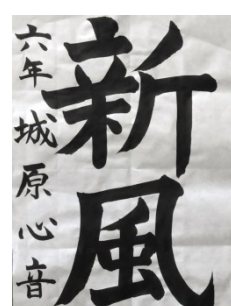 新風
六年城原心音